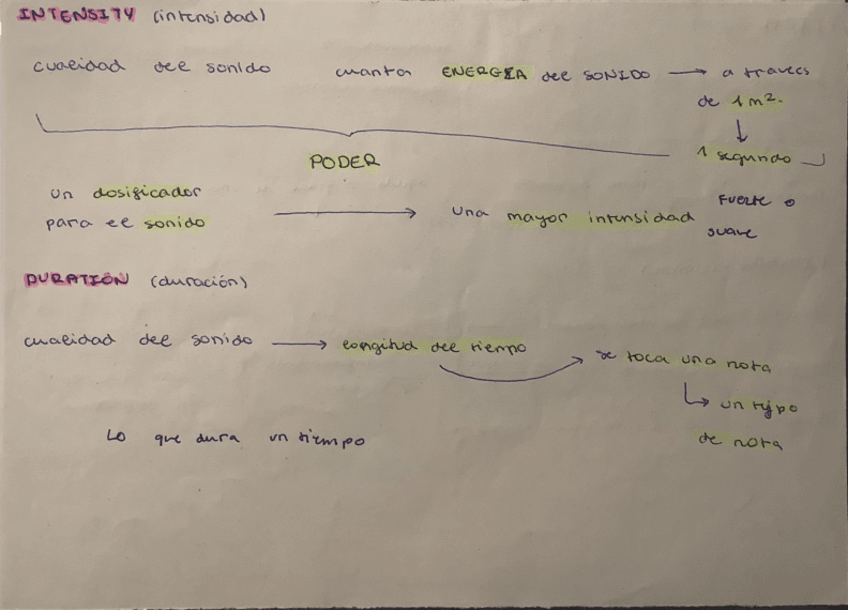 INTENSITY (intensidad)
cualidad del sonido cuanta ENERGIA del SONIDO → a traves
de 1 m².
↓
1 segundo
PODER
un dosificador
para el sonido → una mayor intensidad fuerte o
suave
DURATIÓN (duración)
cualidad del sonido → longitud del tiempo → se toca una nota
↳ un tipo
de nota
Lo que dura un tiempo